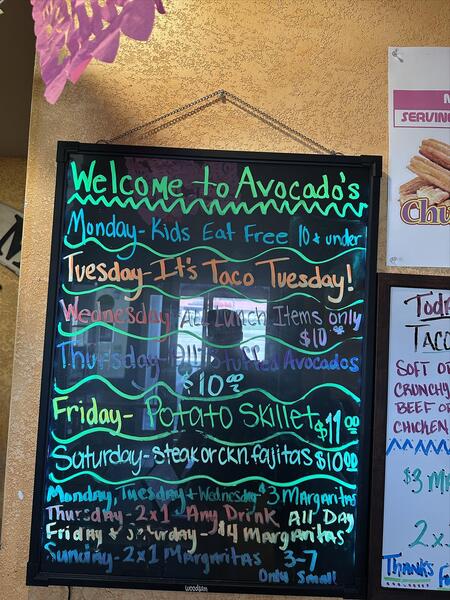 Welcome to Avocado's
Monday- Kids Eat Free 10 & under
Tuesday- It's Taco Tuesday!
Wednesday All Lunch Items only
$10 00
Thursday- All Stuffed Avocados
$10 00
Friday- Potato Skillet $11 00
Saturday- Steak or ckn fajitas $10 00
Monday, Tuesday + Wednesday $3 Margaritas
Thursday- 2x1- Any Drink All Day
Friday + Saturday- $4 Margaritas
Sunday- 2x1 Margaritas 3-7
Only Small
woodsam
SERVING
Chu
Toda
Taco
SOFT OR
CRUNCHY
BEEF OR
CHICKEN
$3 Ma
2x
Thanks Fo